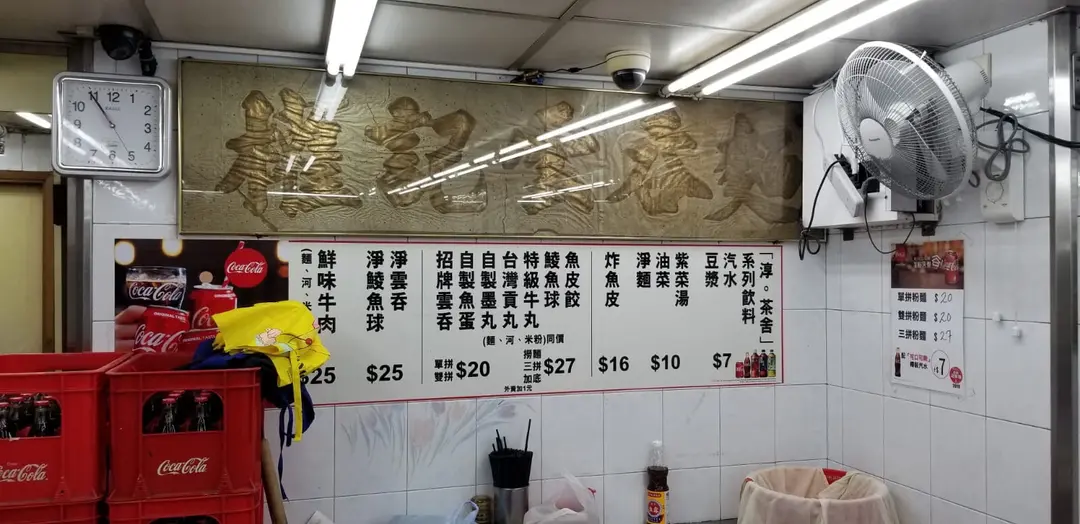 記
麵
「淳。茶舍」
系列飲料
汽水
豆漿
$7
紫菜湯
油菜
淨麵
$10
炸魚皮
$16
魚皮餃
鯪魚球
特級牛丸
台灣貢丸
自製墨丸
自製魚蛋
招牌雲吞
(麵、河、米粉)同價
單拼
雙拼
$20
撈麵
三拼
加底
$27
外賣加1元
淨雲吞
淨鯪魚球
$25
鮮味牛肉
(麵、河、米
$25
Coca-Cola
Coca-Cola
ORIGINAL TASTE
Coca-Cola
Coca-Cola
Coca-Cola
單拼粉麵 $20
雙拼粉麵 $20
三拼粉麵 $27
配"可口可樂"
樽裝汽水
$7
12
1
2
3
4
5
6
7
8
9
10
11